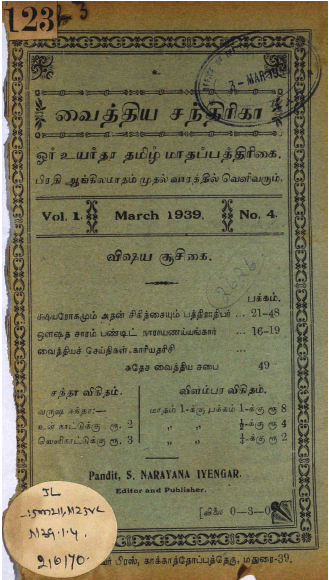 123
வைத்திய சந்திரிகா
ஓர் உயர்தர தமிழ் மாதப்பத்திரிகை.
பிரதி ஆங்கிலமாதம் முதல் வாரத்தில் வெளிவரும்.
Vol. 1. March 1939. No. 4.
விஷய சூசிகை.
பக்கம்.
க்ஷயரோகமும் அதன் சிகித்சையும் பத்திராதிபர் ... 21-48
ஔஷத சாரம் பண்டிட் நாராயணய்யங்கார் ... 16-19
வைத்தியச் செய்திகள்-காரியதரிசி ...
சுதேச வைத்திய சபை 49
சந்தா விகிதம்.
வருஷ சந்தா:—
உள் நாட்டுக்கு ரூ. 2
வெளிநாட்டுக்கு ரூ. 3
விளம்பர விகிதம்.
மாதம் 1-க்கு பக்கம் 1-க்கு ரூ 8
„ „ ½-க்கு ரூ 4
„ „ ¼-க்கு ரூ 2
Pandit, S. NARAYANA IYENGAR.
Editor and Publisher.
0—3—0
216170
பிரஸ், காக்காத்தோப்புத்தெரு, மதுரை-39.